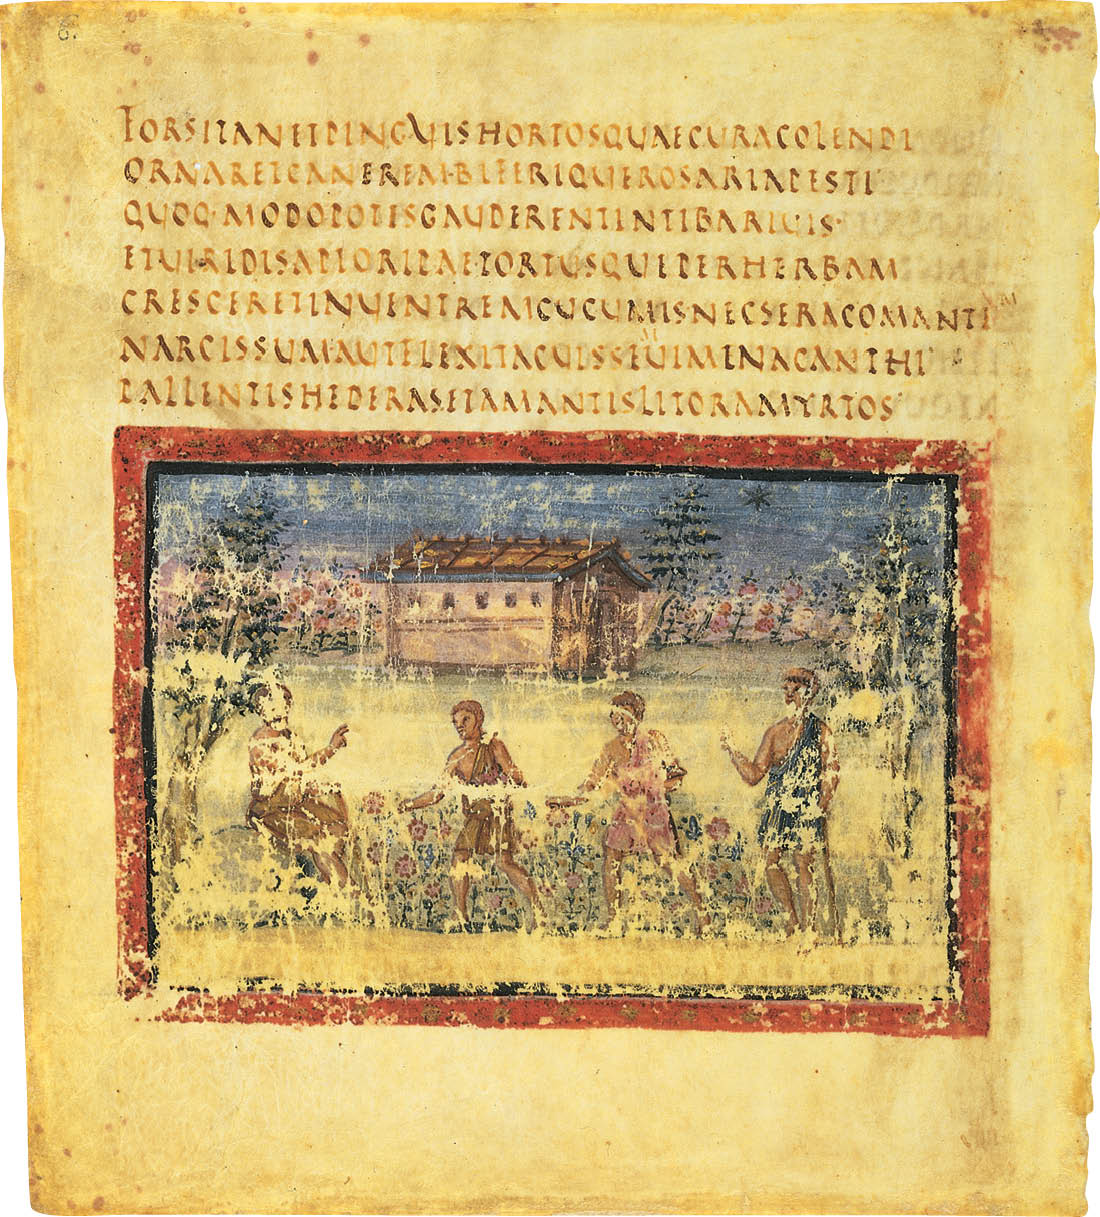 6.
FORSITANETPINGUISHORTOSQUAECURACOLENDI
ORNARETCANEREM·BIFERIQUEROSARIAPESTI
QUOQ·MODOPOTISGAUDERENTINTIBARIUIS·
ETUIRIDISAPIORIPAETORTUSQUEPERHERBAM
CRESCERETINUENTREMCUCUMISNECSERACOMANTI
NARCISSUMAUTFLEXITACUISSEUIMENACANTHI
PALLENTISHEDERASETAMANTISLITORAMYRTOS